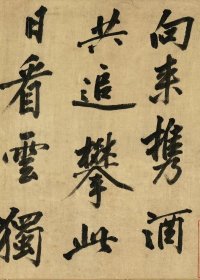 向来攜酒
共追攀此
日看雲獨